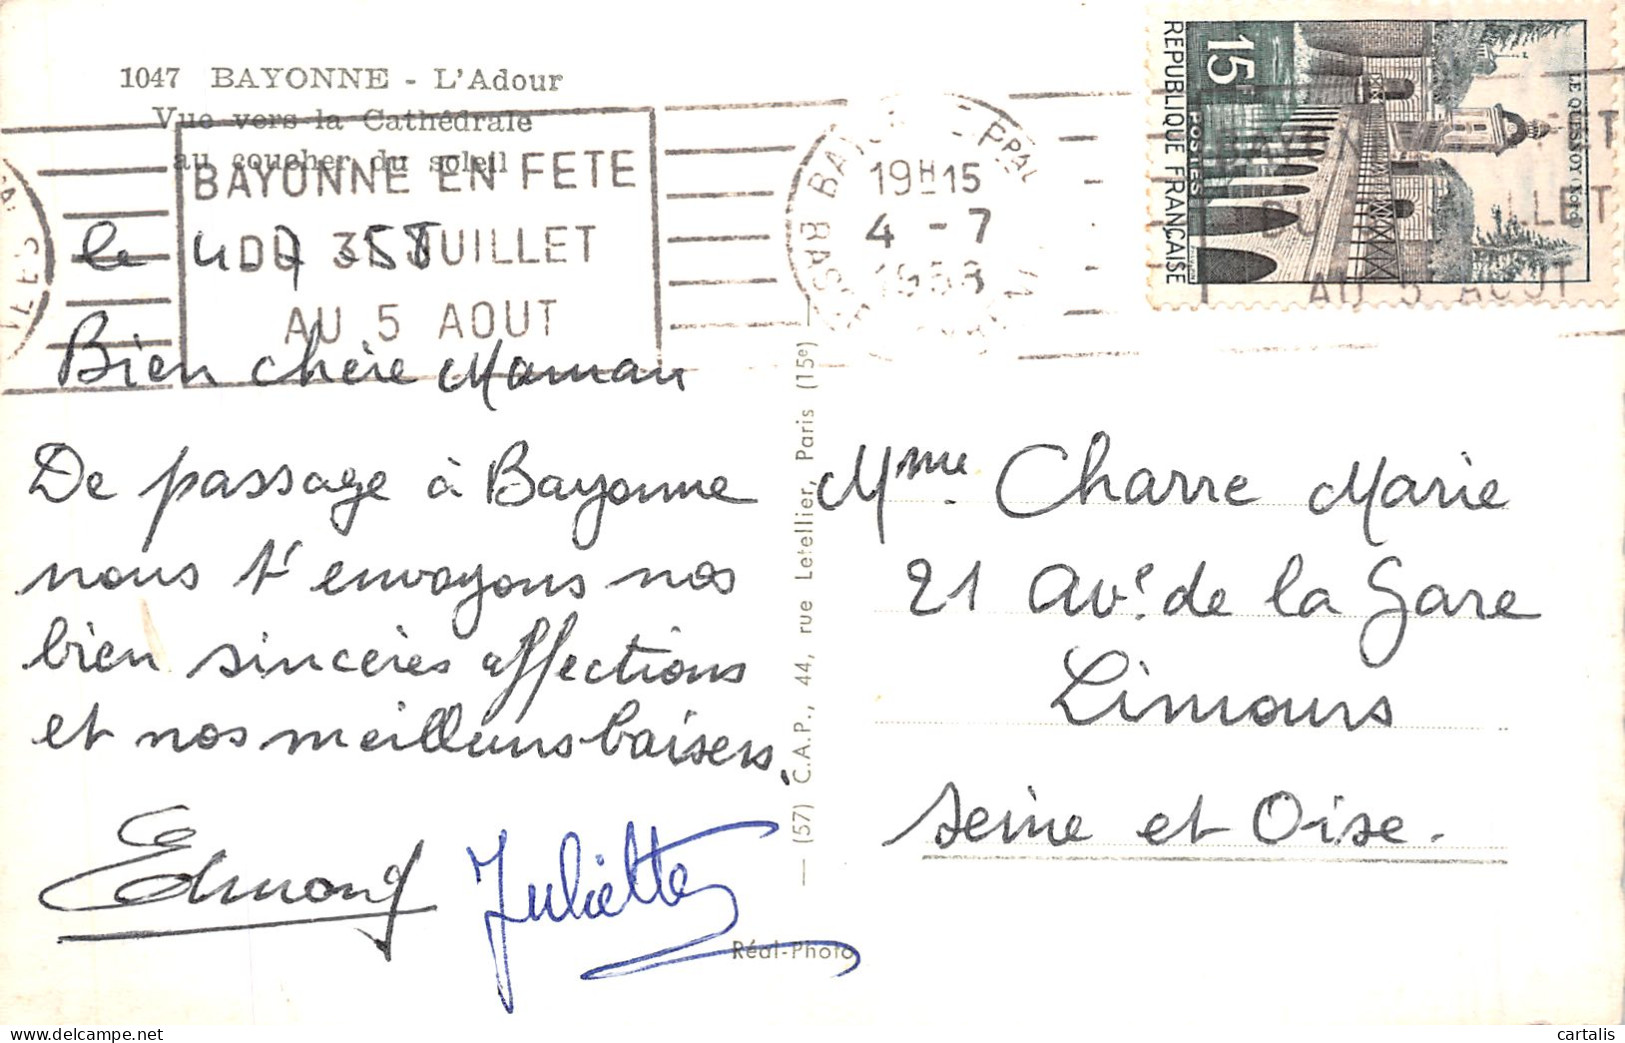 1047 BAYONNE - L'Adour
Vue vers la Cathédrale
au coucher du soleil
BAYONNE EN FETE
JUILLET
AU 5 AOUT
19H15
4 - 7
15F
POSTES
REPUBLIQUE FRANÇAISE
LE QUESNOY (Nord)
LLET
AU 5 AOUT
le 4.7.58
Bien chère Maman
De passage à Bayonne
nous t'envoyons nos
bien sincères affections
et nos meilleurs baisers.
Edmond
Juliette
(57) C.A.P., 44, rue Letellier, Paris (15e)
Réal-Photo
Mme. Charre Marie
21 Ave. de la Gare
Limours
Seine et Oise.
cartalis